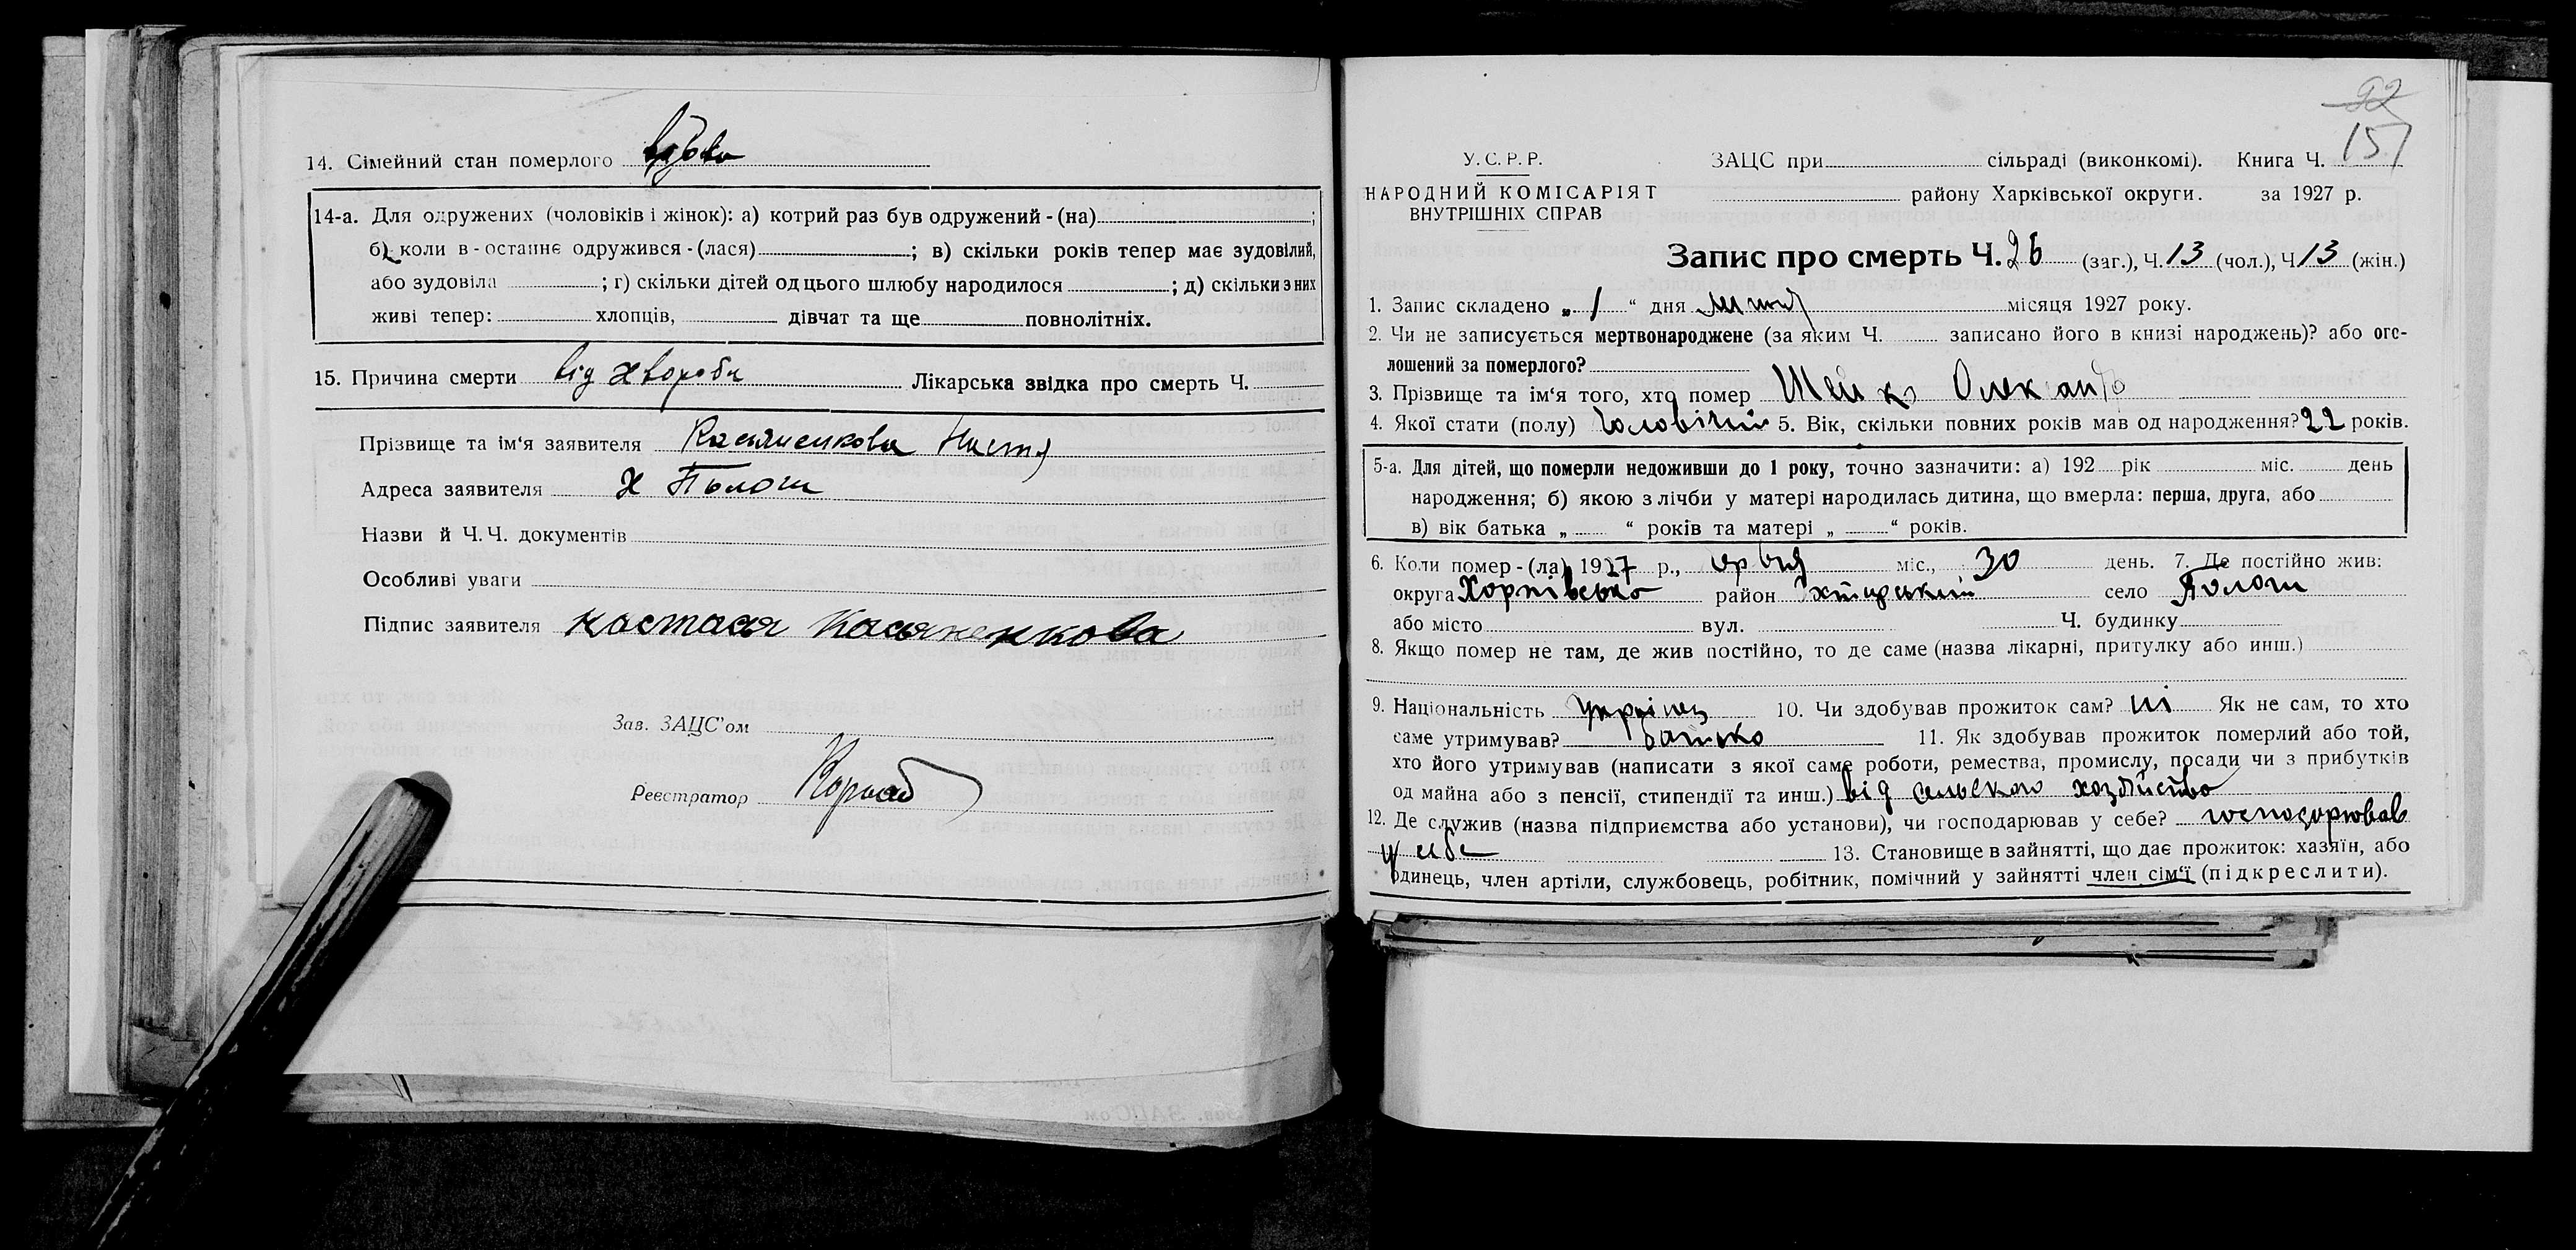 14. Сімейний стан померлого вдова
14-а. Для одружених (чоловіків і жінок): а) котрий раз був одружений - (на) ;
б) коли в - останнє одружився - (лася) ; в) скільки років тепер має зудовілий,
або зудовіла ; г) скільки дітей од цього шлюбу народилося ; д) скільки з них
живі тепер: хлопців, дівчат та ще повнолітніх.
15. Причина смерти від хвороби Лікарська звідка про смерть Ч.
Прізвище та ім'я заявителя Касяненкова Настя
Адреса заявителя х
Назви й Ч. Ч. документів
Особливі уваги
Підпис заявителя настася Касяненкова
Зав. ЗАЦС'ом
Реєстратор
92
157
У. С. Р. Р.
НАРОДНИЙ КОМІСАРІЯТ
ВНУТРІШНІХ СПРАВ
ЗАЦС при сільраді (виконкомі). Книга Ч.
району Харківської округи. за 1927 р.
Запис про смерть Ч. 26 (заг.), Ч. 13 (чол.), Ч 13 (жін.)
1. Запис складено „ 1 “ дня місяця 1927 року.
2. Чи не записується мертвонароджене (за яким Ч. записано його в книзі народжень)? або ого-
лошений за померлого?
3. Прізвище та ім'я того, хто помер Шейко
4. Якої стати (полу) Чоловічий 5. Вік, скільки повних років мав од народження? 22 років.
5-а. Для дітей, що померли недоживши до 1 року, точно зазначити: а) 192 рік міс. день
народження; б) якою з лічби у матері народилась дитина, що вмерла: перша, друга, або
в) вік батька „ “ років та матері „ “ років.
6. Коли помер - (ла) 1927 р., міс., 30 день. 7. Де постійно жив:
округа район село
або місто вул. Ч. будинку
8. Якщо помер не там, де жив постійно, то де саме (назва лікарні, притулку або инш.)
9. Національність Українец 10. Чи здобував прожиток сам? ні Як не сам, то хто
саме утримував? батько 11. Як здобував прожиток померлий або той,
хто його утримував (написати з якої саме роботи, ремества, промислу, посади чи з прибутків
од майна або з пенсії, стипендії та инш.) від сельского хозбійство
12. Де служив (назва підприємства або установи), чи господарював у себе? господорював
у себе 13. Становище в зайнятті, що дає прожиток: хазяїн, або
одинець, член артіли, службовець, робітник, помічний у зайнятті член сім'ї (підкреслити).